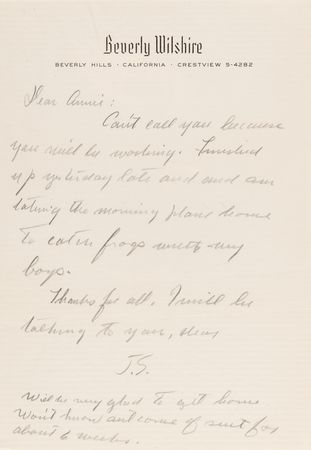 Beverly Wilshire
BEVERLY HILLS · CALIFORNIA · CRESTVIEW 5-4282
Dear Annie:
Can't call you because
you will be working. Finished
up yesterday late and and am
taking the morning plane home
to catch frogs with my
boys.
Thanks for all. I will be
talking to you, dear
J.S.
Will be very glad to get home
Won't know outcome of suit for
about 6 weeks.